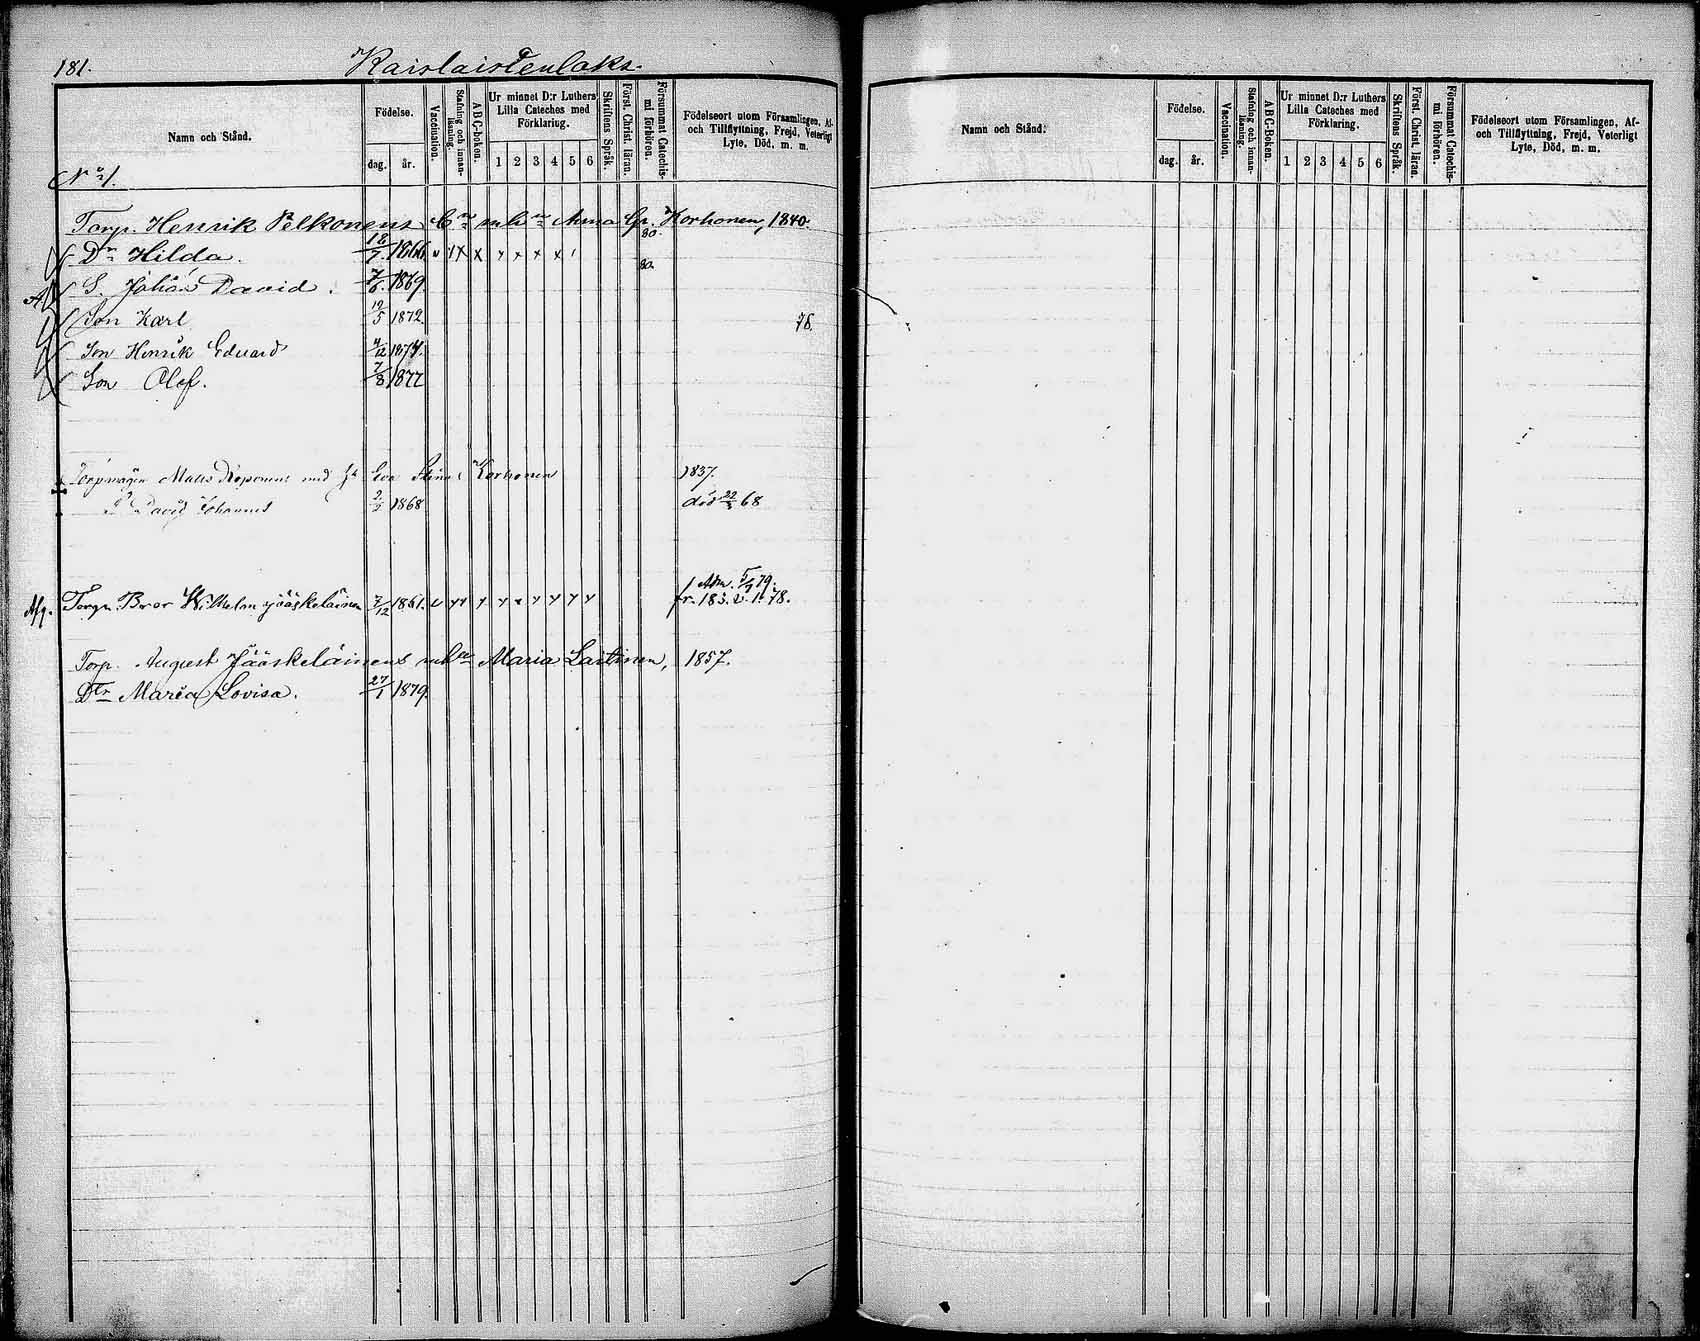 181. Kaislaistenlaks.
Namn och Stånd.
Födelse.
dag. år.
Vaccination.
Stafning och innanläsning.
ABC-boken.
Ur minnet D:r Luthers Lilla Cateches med Förklaring.
1 2 3 4 5 6
Skriftens Språk.
Först. Christ. läran.
Försummat Catechismi förhören.
Födelseort utom Församlingen, Af- och Tillflyttning, Frejd, Veterligt Lyte, Död, m. m.
No 1.
Torp. Henrik Pelkonens Bn mhu Anna Gr. Korhonen, 1840.
Dr Hilda. 18/7 1866. 80.
S. Johan David. 7/6 1869. 80.
Son Karl 19/5 1872. 78.
Son Henrik Eduard 4/12 1874.
Son Olof. 7/8 1877
Matts Koponens med Eva Stina Korhonen 1837.
David Johannes 2/2 1868 död 22/3 68
Afg. Torpn Bror Wilhelm Jääskeläinen 7/12 1861. Atm. 5/7 79.
fr. 185. v. 1. 78.
Torp. August Jääskeläinens mhu Maria Laitinen, 1857.
Dtr Maria Lovisa. 27/1 1879.
Namn och Stånd.
Födelse.
dag. år.
Vaccination.
Stafning och innanläsning.
ABC-boken.
Ur minnet D:r Luthers Lilla Cateches med Förklaring.
1 2 3 4 5 6
Skriftens Språk.
Först. Christ. läran.
Försummat Catechismi förhören.
Födelseort utom Församlingen, Af- och Tillflyttning, Frejd, Veterligt Lyte, Död, m. m.